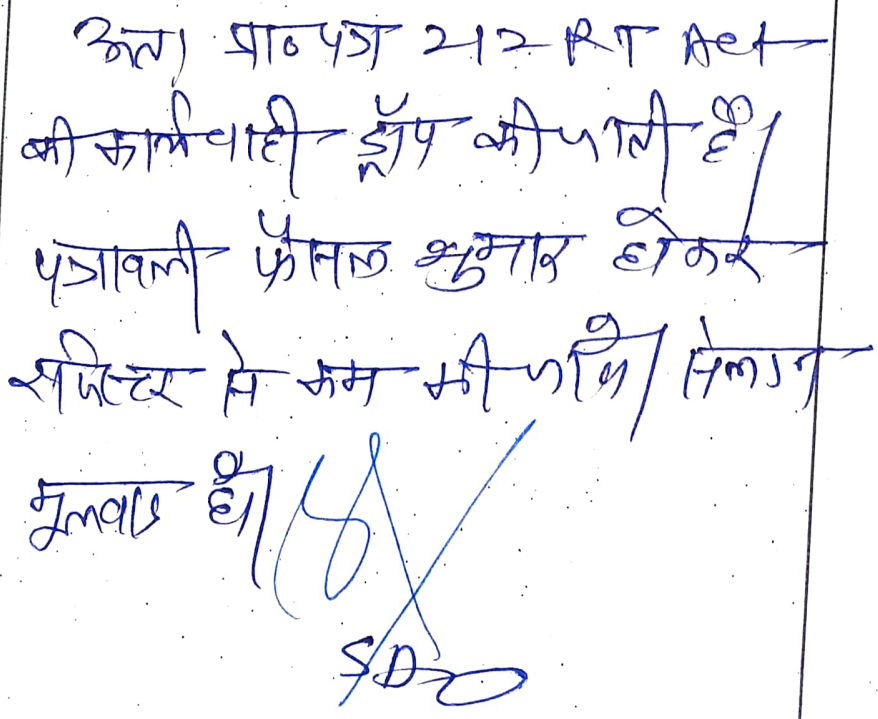 अतः प्रा० पत्र 212 RT Act
की कार्यवाही ड्रॉप की जाती है।
पत्रावली फैसल शुमार होकर
रजिस्टर से कम की जावे। संलग्न
मूलवाद हो।
SDO